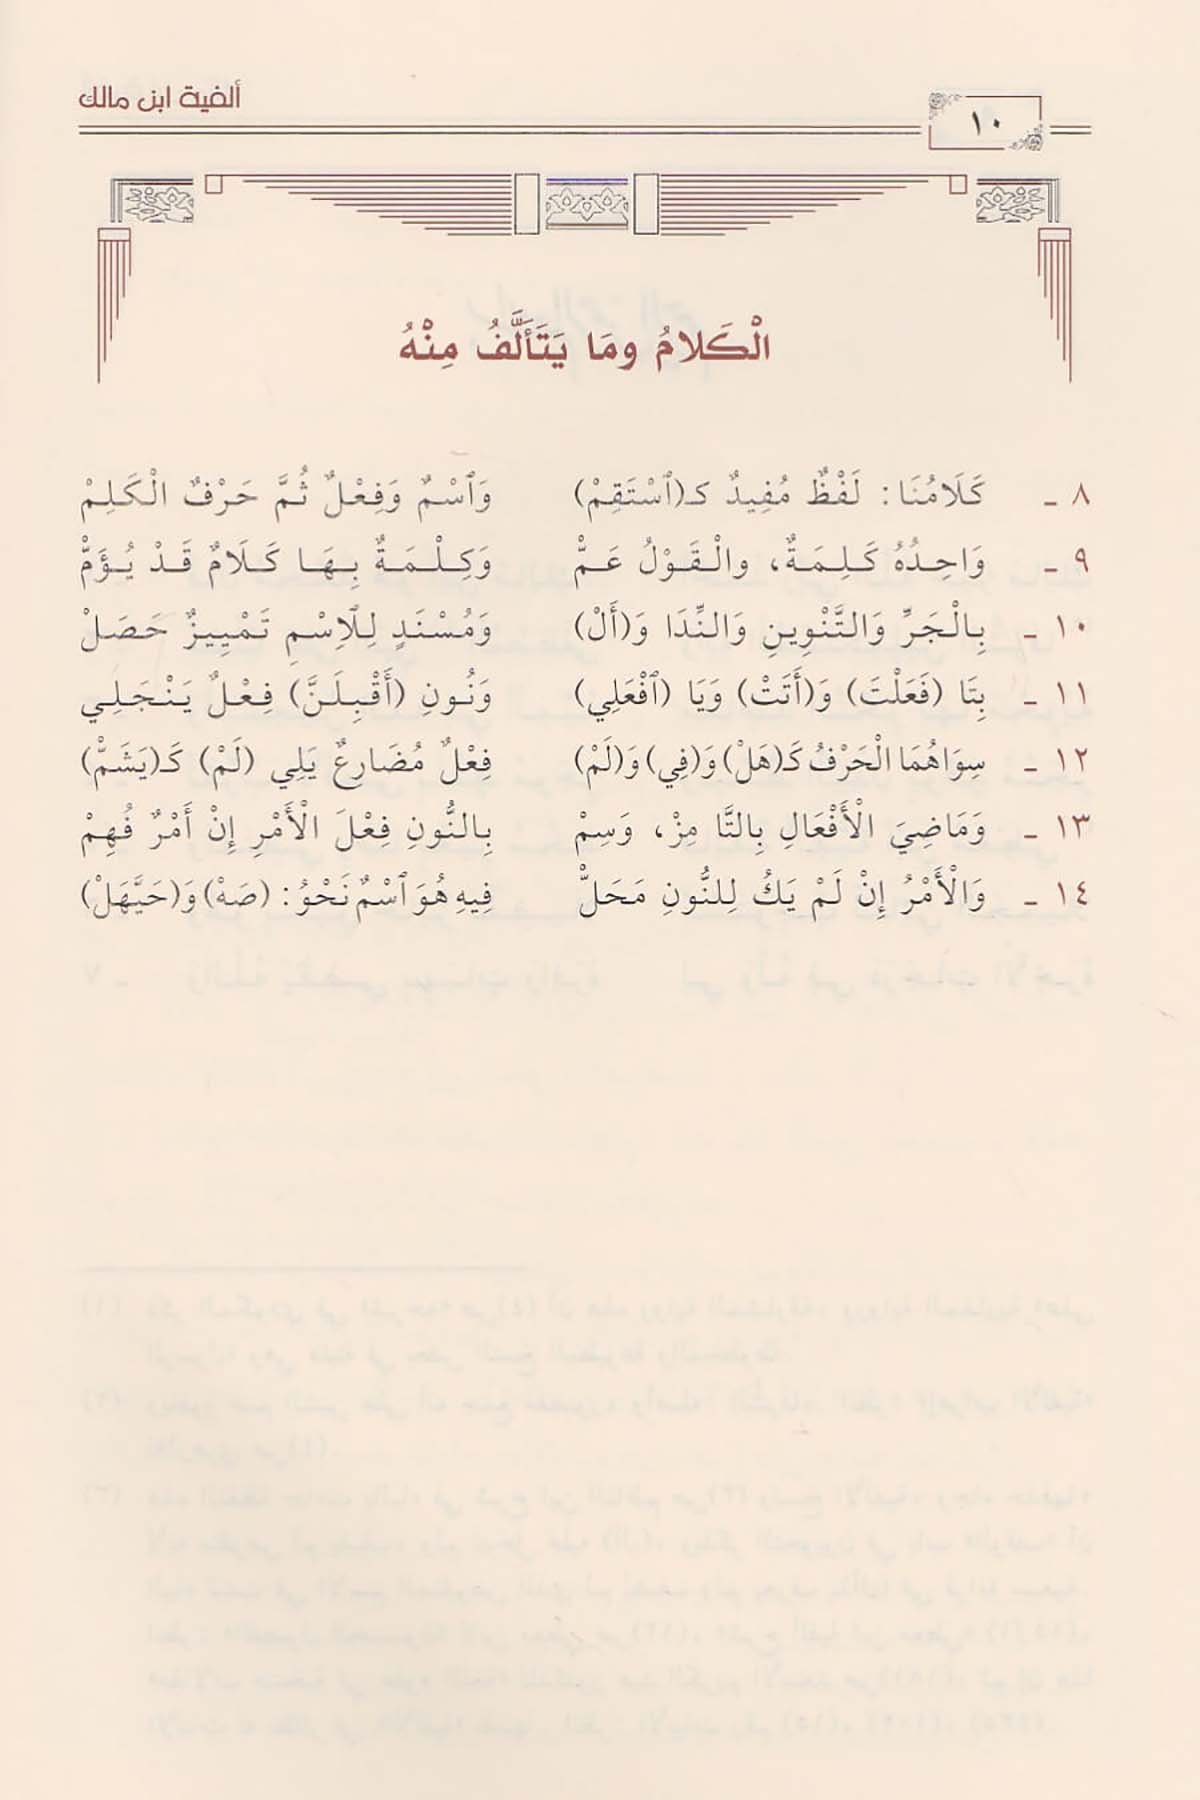 ألفية ابن مالك
١٠
الْكَلامُ ومَا يَتَأَلَّفُ مِنْهُ
٨ ـ كَلَامُنَا: لَفْظٌ مُفِيدٌ كـ(ٱسْتَقِمْ) وَٱسْمٌ وَفِعْلٌ ثُمَّ حَرْفٌ الْكَلِمْ
٩ ـ وَاحِدُهُ كَلِمَةٌ، والْقَوْلُ عَمّْ وَكِلْمَةٌ بِهَا كَلَامٌ قَدْ يُؤَمّْ
١٠ ـ بِالْجَرِّ وَالتَّنْوِينِ وَالنِّدَا وَ(أَلْ) وَمُسْنَدٍ لِلِٱسْمِ تَمْيِيزٌ حَصَلْ
١١ ـ بِتَا (فَعَلْتَ) وَ(أَتَتْ) وَيَا (ٱفْعَلِي) وَنُونِ (أَقْبِلَنَّ) فِعْلٌ يَنْجَلِي
١٢ ـ سِوَاهُمَا الْحَرْفُ كَـ(هَلْ) وَ(فِي) وَ(لَمْ) فِعْلٌ مُضَارِعٌ يَلِي (لَمْ) كَـ(يَشَمّْ)
١٣ ـ وَمَاضِيَ الْأَفْعَالِ بِالتَّا مِزْ، وَسِمْ بِالنُّونِ فِعْلَ الْأَمْرِ إِنْ أَمْرٌ فُهِمْ
١٤ ـ وَالْأَمْرُ إِنْ لَمْ يَكُ لِلنُّونِ مَحَلّْ فِيهِ هُوَ ٱسْمٌ نَحْوُ: (صَهْ) وَ(حَيَّهَلْ)